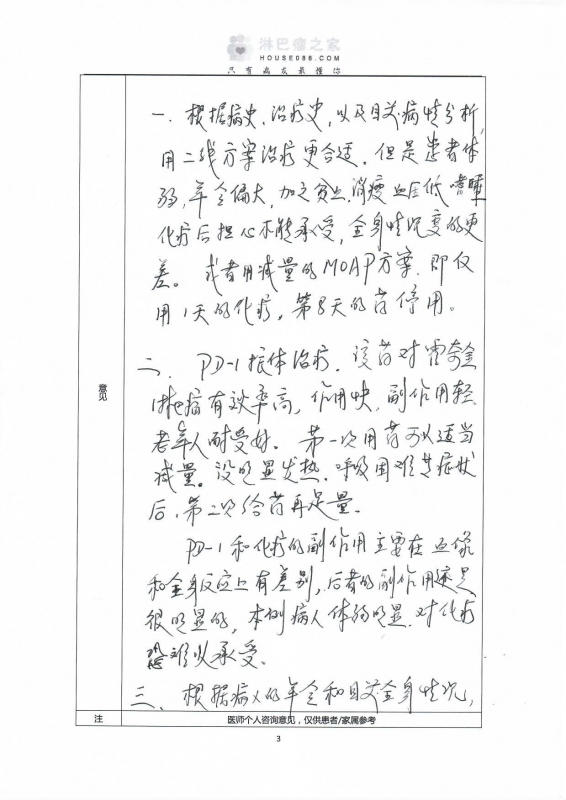 淋巴瘤之家
HOUSE086.COM
只有病友最懂你
一、根据病史、治疗史，以及目前病情分析，
用二线方案治疗更合适。但是患者体
弱，年令偏大，加之贫血、消瘦、血压低、嗜睡
化疗后担心不能承受，全身情况变的更
差。或者用减量的MOAP方案，即仅
用1天的化疗，第8天的药停用。
二、PD-1抗体治疗，该药对霍奇金
淋巴病有效率高，作用快，副作用轻
老年人耐受好。第一次用药可以适当
减量。没明显发热、呼吸困难等症状
后，第二次给药再足量。
PD-1和化疗的副作用主要在血像
和全身反应上有差别，后者的副作用还是
很明显的，本例病人体弱明显，对化疗
恐难以承受。
三、根据病人的年令和目前全身情况，
意见
注
医师个人咨询意见，仅供患者/家属参考
3